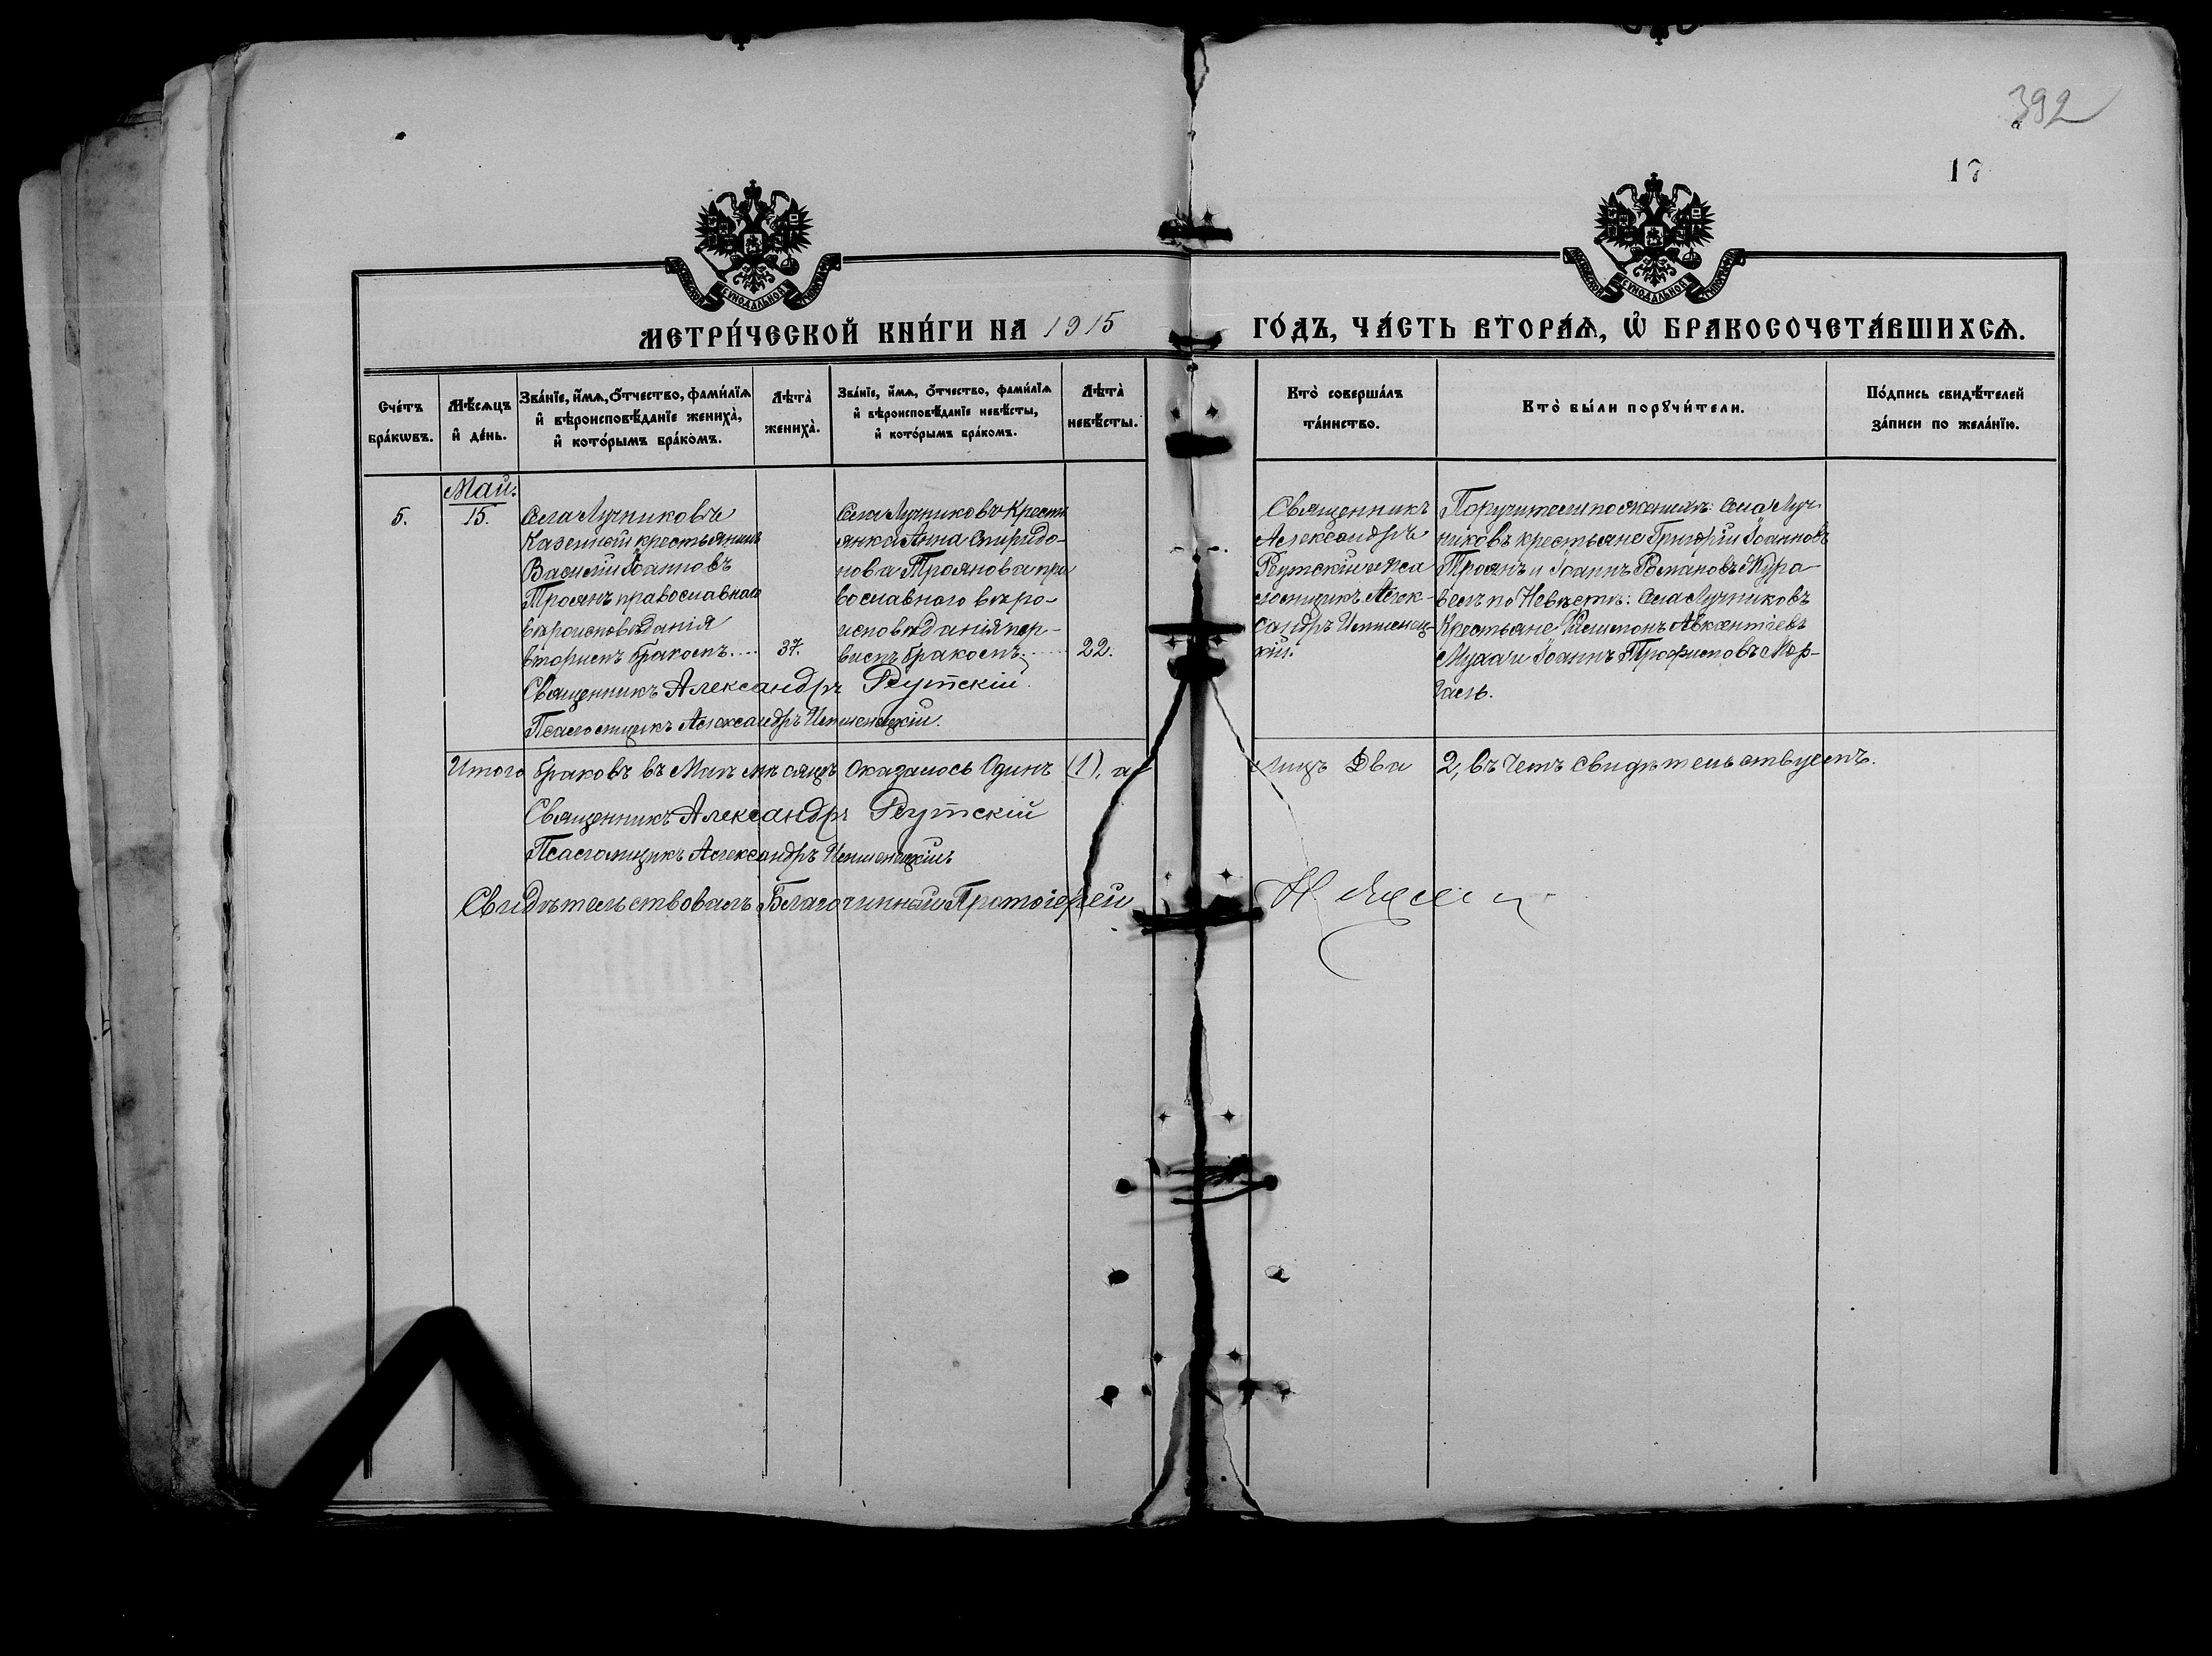 392
17
МЕТРИ́ЧЕСКОЙ КНИ́ГИ НА 1915 ГО́ДЪ, ЧА́СТЬ ВТОРА́Ѧ, Ѡ҆ БРАКОСОЧЕТА́ВШИХСѦ.
Сче́тъ бра́кѡвъ.
Мѣ́сѧцъ и҆ де́нь.
Зва́нїе, и҆́мѧ, ѻ҆́тчество, фами́лїѧ
и҆ вѣроисповѣ́данїе жениха̀,
и҆ кото́рымъ бра́комъ.
Лѣта̀ жениха̀.
Зва́нїе, и҆́мѧ, ѻ҆́тчество, фами́лїѧ
и҆ вѣроисповѣ́данїе невѣ́сты,
и҆ кото́рымъ бра́комъ.
Лѣта̀ невѣ́сты.
Кто̀ соверша́лъ та́инство.
Кто̀ бы́ли порꙋчи́тели.
По́дпись свидѣ́телей за́писи по жела́нїю.
5.
Май.
15.
Села Лучниковъ
Казенный крестьянинъ
Василій Іоанновъ
Троянъ православнаго
вѣроисповѣданія
вторымъ бракомъ....
37.
Села Лучниковъ крестья
янка Анна Спиридо-
нова Троянова пра
вославного вѣро-
исповѣданія пер-
вымъ бракомъ.
22.
Священникъ
Александръ
Реутскій и Пса
ломщикъ Алек-
сандръ
кій.
Поручители по женихѣ: Села Луч-
никовъ крестьяне Григорій Іоанновъ
Троянъ и Іоаннъ Романовъ Жура-
вель по Невѣстѣ: Села Лучниковъ
Крестьяне Авксентіевъ
Муха и Іоаннъ Трофимовъ
Священникъ Александръ Реутскій.
Псаломщикъ Александръ
Итого браковъ въ Маѣ мѣсяцѣ Оказалось Одинъ (1), а лицъ Два 2, въ чемъ свидѣтельствуемъ.
Священникъ Александръ Реутскій
Псаломщикъ Александръ
Свидѣтельствовалъ Благочинный Протоіерей